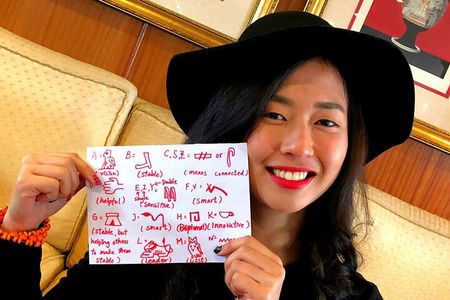 A= B= C,S,Z= or
(vision) (stable) (means connected)
D= E,I,Y= double F,V=
(helpful) single (smart)
(sensitive)
G= J= H= K=
(stable, but (smart) (Diplomat) (innovative)
helping others L= M= N=
to make them (leader) (wise)
stable)